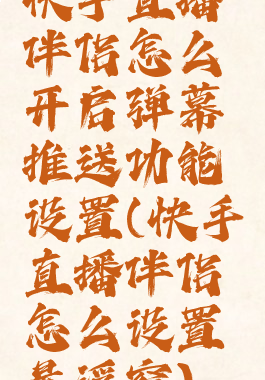 快手直播
伴侣怎么
开启弹幕
推送功能
设置(快手
直播伴侣
怎么设置
悬浮窗)